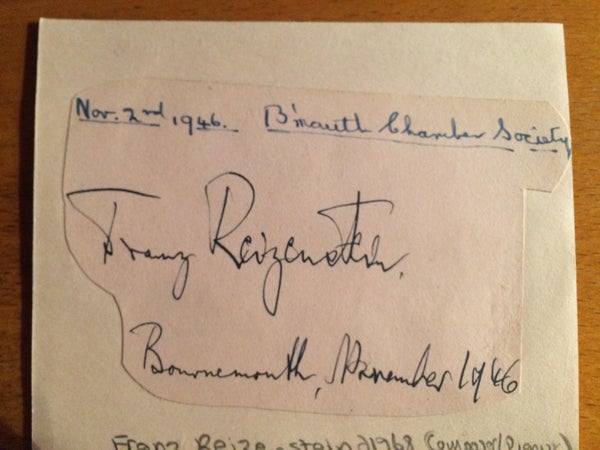 Nov. 2nd 1946. B'mouth Chamber Society
Franz Reizenstein.
Bournemouth, November 1946
Franz Reizenstein d1968 (Composer/Pianist)